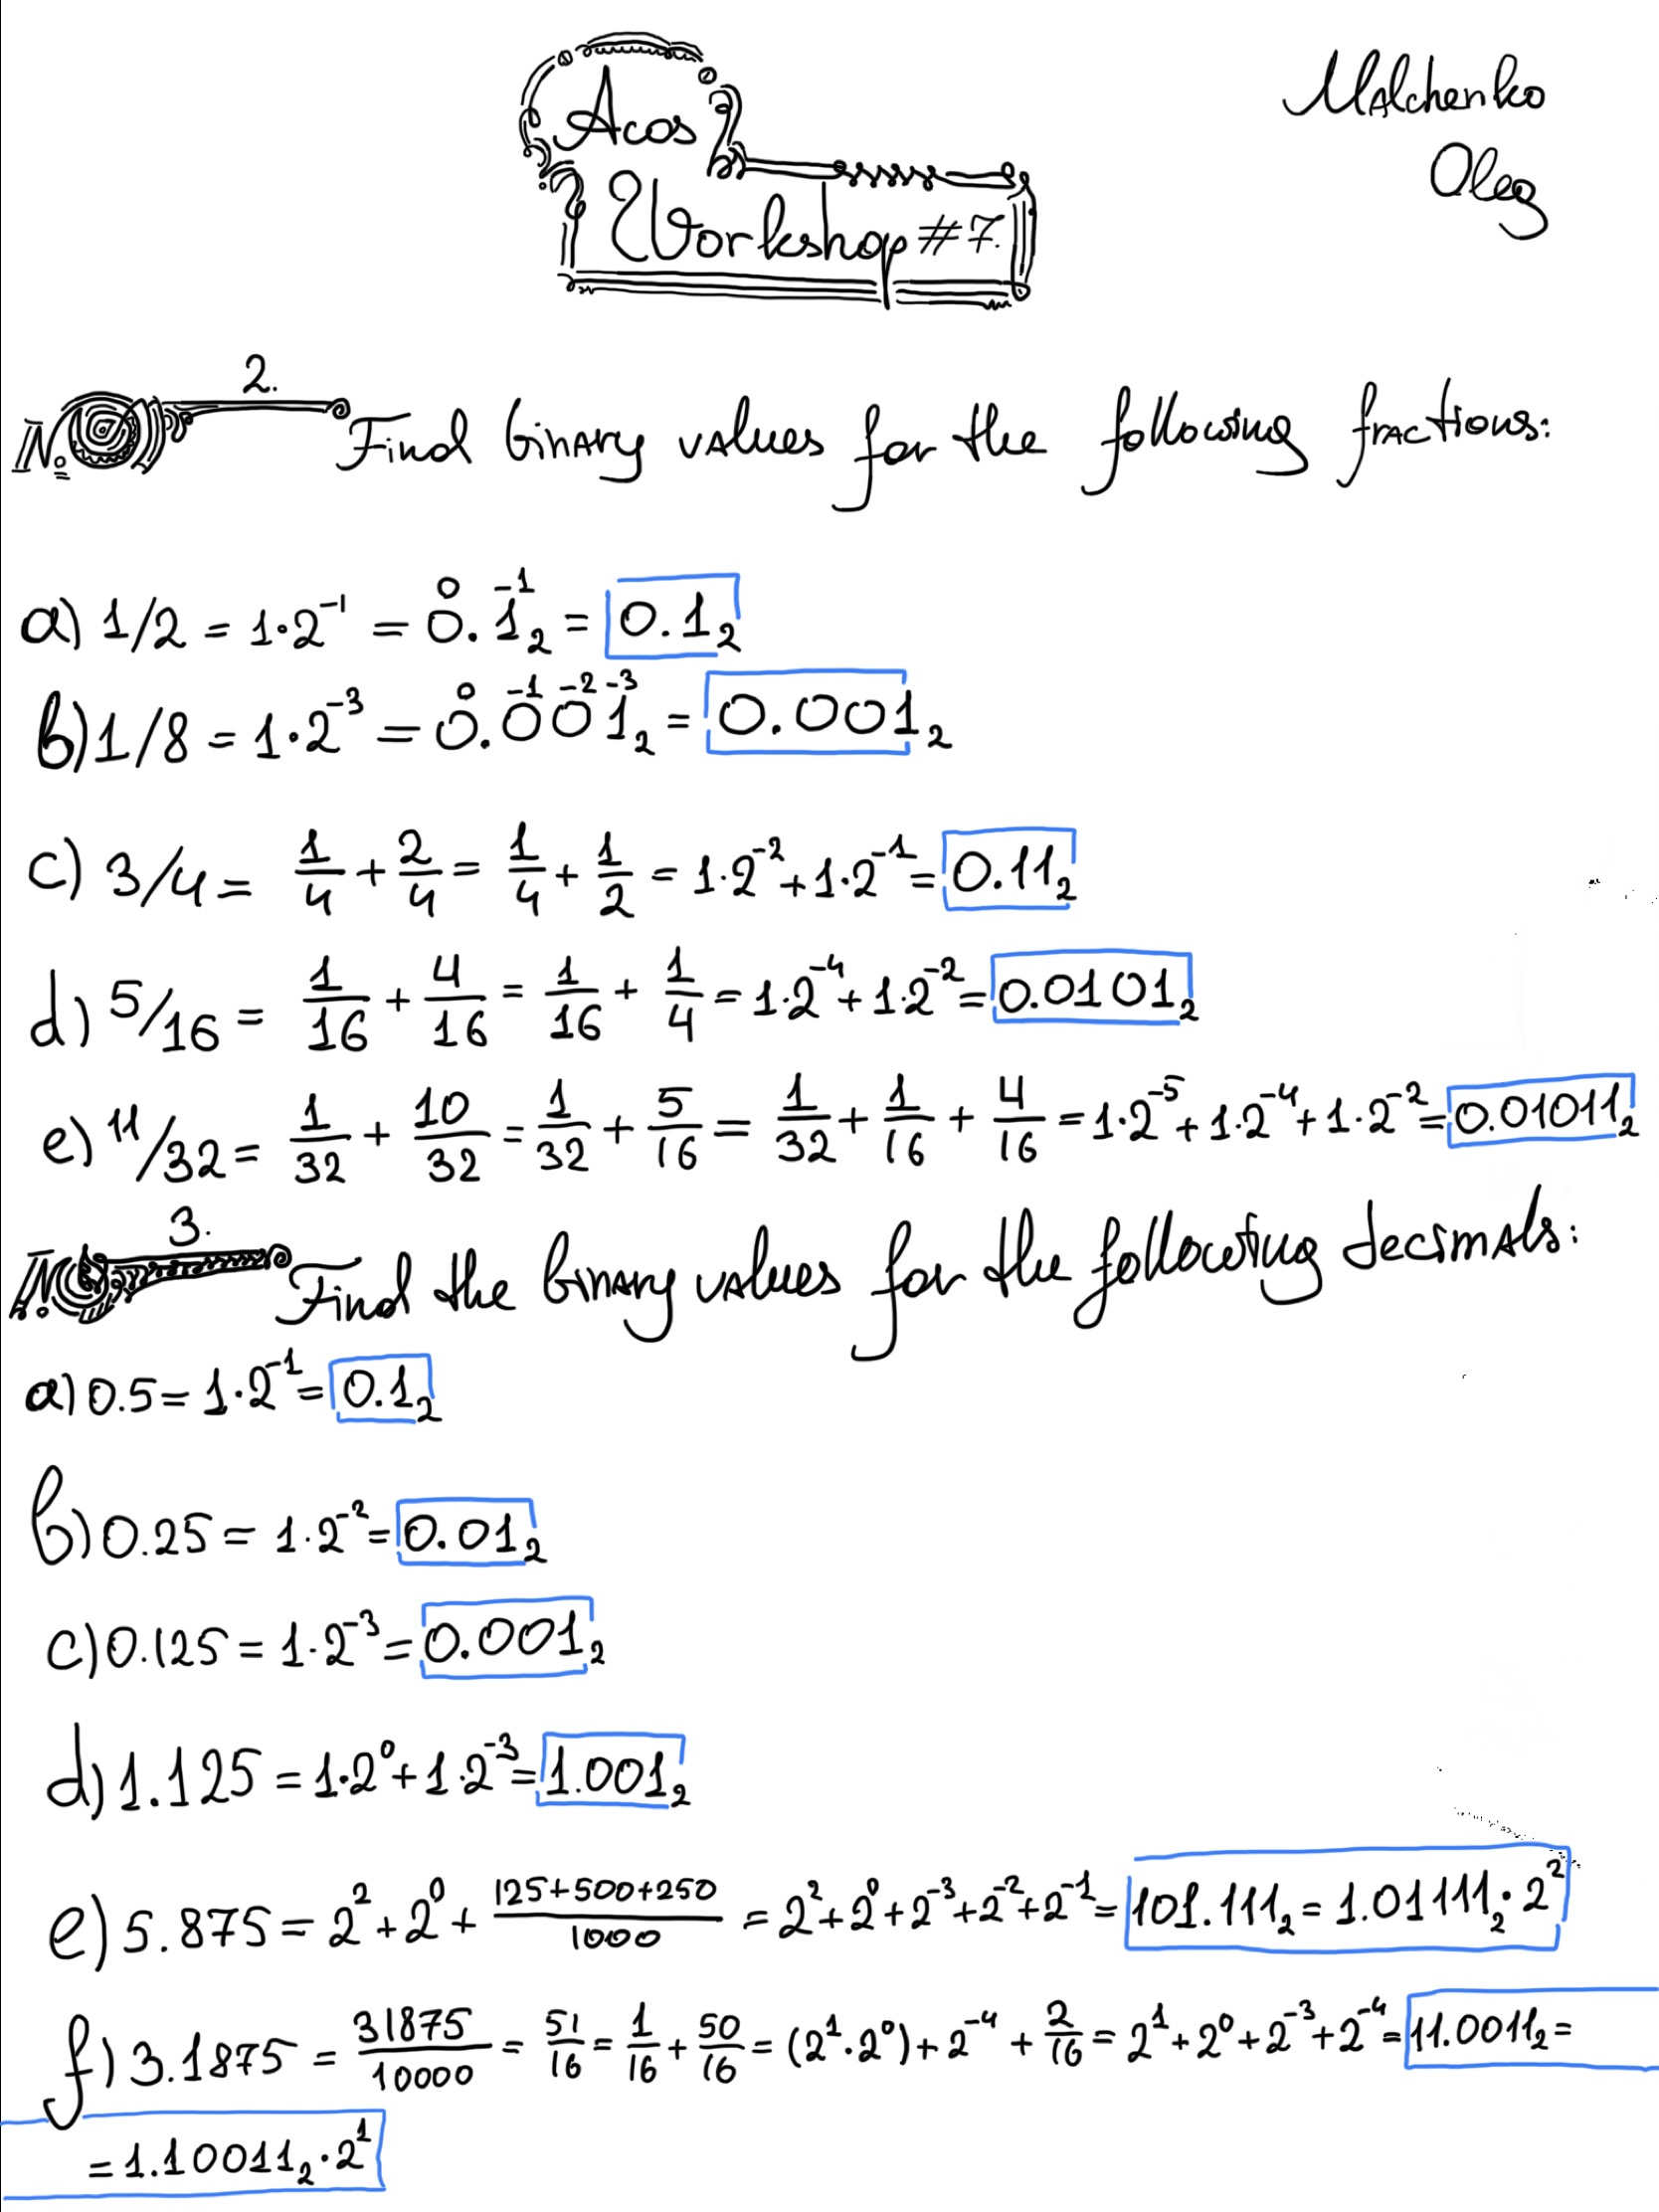 Acos
Workshop #7.
Malchenko
Oleg
No 2. Find binary values for the following fractions:
a) 1/2 = 1·2⁻¹ = 0.1₂ = 0.1₂
0 -1
b) 1/8 = 1·2⁻³ = 0.001₂ = 0.001₂
0 -1 -2 -3
c) 3/4 = 1/4 + 2/4 = 1/4 + 1/2 = 1·2⁻² + 1·2⁻¹ = 0.11₂
d) 5/16 = 1/16 + 4/16 = 1/16 + 1/4 = 1·2⁻⁴ + 1·2⁻² = 0.0101₂
e) 11/32 = 1/32 + 10/32 = 1/32 + 5/16 = 1/32 + 1/16 + 4/16 = 1·2⁻⁵ + 1·2⁻⁴ + 1·2⁻² = 0.01011₂
No 3. Find the binary values for the following decimals:
a) 0.5 = 1·2⁻¹ = 0.1₂
b) 0.25 = 1·2⁻² = 0.01₂
c) 0.125 = 1·2⁻³ = 0.001₂
d) 1.125 = 1·2⁰ + 1·2⁻³ = 1.001₂
e) 5.875 = 2² + 2⁰ + (125+500+250)/1000 = 2² + 2⁰ + 2⁻³ + 2⁻² + 2⁻¹ = 101.111₂ = 1.01111₂·2²
f) 3.1875 = 31875/10000 = 51/16 = 1/16 + 50/16 = (2¹·2⁰) + 2⁻⁴ + 2/16 = 2¹ + 2⁰ + 2⁻³ + 2⁻⁴ = 11.0011₂ =
= 1.10011₂·2¹